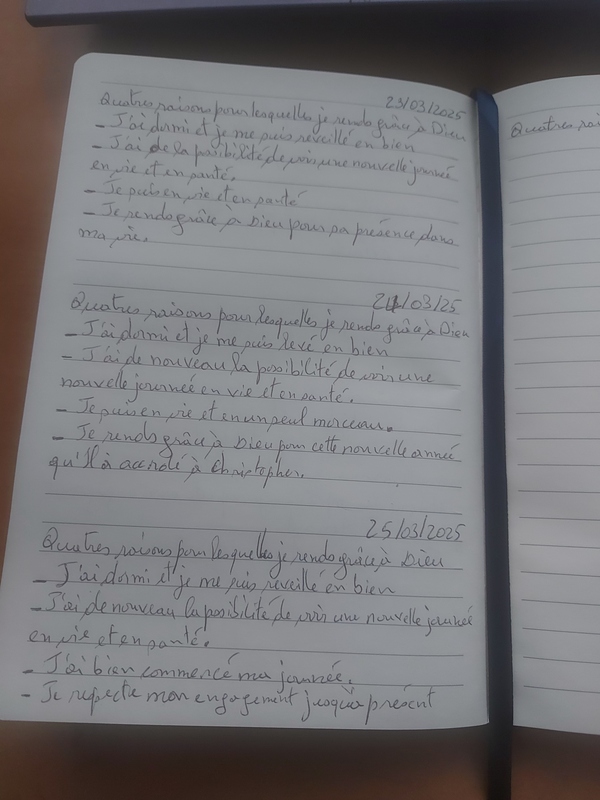 23/03/2025
Quatres raisons pour lesquelles je rends grâce à Dieu
- J'ai dormi et je me suis réveillé en bien
- J'ai de la possibilité de voir une nouvelle journée
en vie et en santé.
- Je suis en vie et en santé
- Je rends grâce à Dieu pour sa présence dans
ma vie.
24/03/25
Quatres raisons pour lesquelles je rends grâce à Dieu
- J'ai dormi et je me suis levé en bien
- J'ai de nouveau la possibilité de voir une
nouvelle journée en vie et en santé.
- Je suis en vie et en un seul morceau.
- Je rends grâce à Dieu pour cette nouvelle année
qu'Il à accordé à Christopher.
25/03/2025
Quatres raisons pour lesquelles je rends grâce à Dieu
- J'ai dormi et je me suis réveillé en bien
- J'ai de nouveau la possibilité de voir une nouvelle journée
en vie et en santé.
- J'ai bien commencé ma journée.
- Je respecte mon engagement jusqu'à présent
Quatres rai